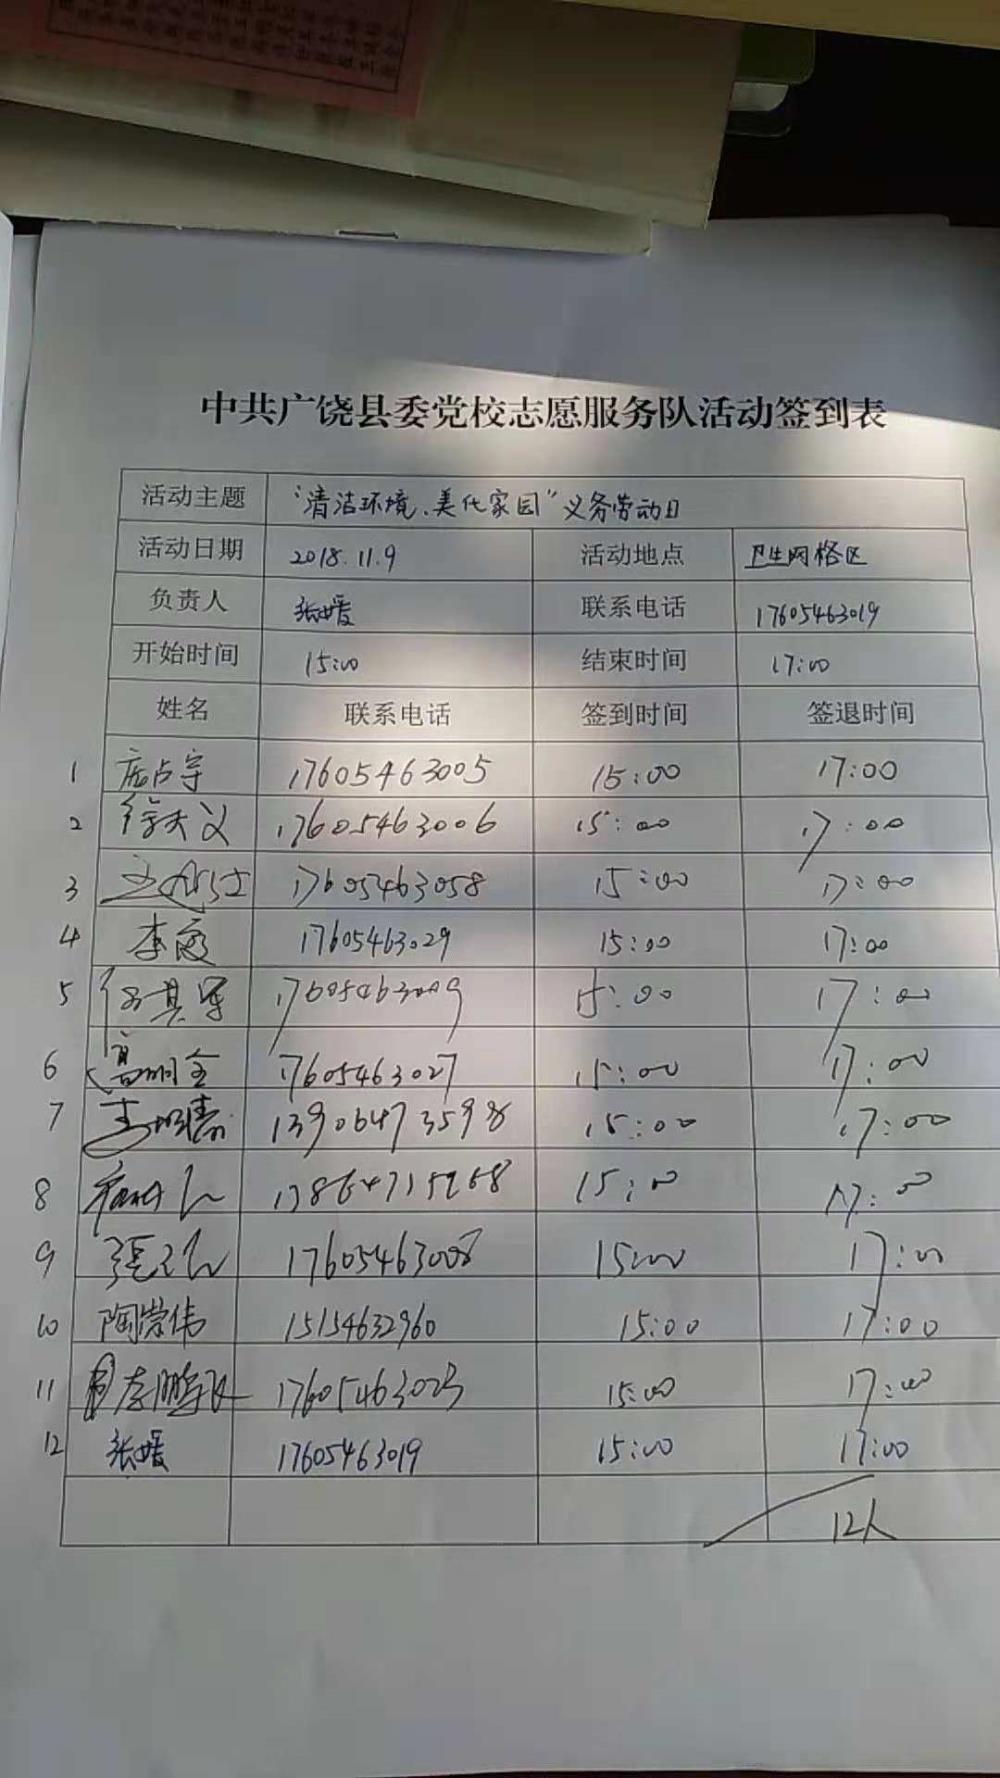 中共广饶县委党校志愿服务队活动签到表
活动主题 "清洁环境、美化家园"义务劳动日
活动日期 2018.11.9 活动地点 卫生网格区
负责人 张媛 联系电话 17605463019
开始时间 15:00 结束时间 17:00
姓名 联系电话 签到时间 签退时间
1 庞占宇 17605463005 15:00 17:00
2 徐天义 17605463006 15:00 17:00
3 17605463058 15:00 17:00
4 李霞 17605463029 15:00 17:00
5 徐其军 17605463009 15:00 17:00
6 高明全 17605463027 15:00 17:00
7 13906473598 15:00 17:00
8 15:00 17:00
9 17605463008 15:00 17:00
10 陶崇伟 15154632960 15:00 17:00
11 李鹏飞 17605463023 15:00 17:00
12 张媛 17605463019 15:00 17:00
12人